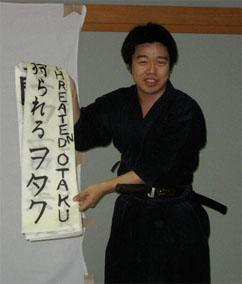 狩られるヲタク
THREATEND OTAKU